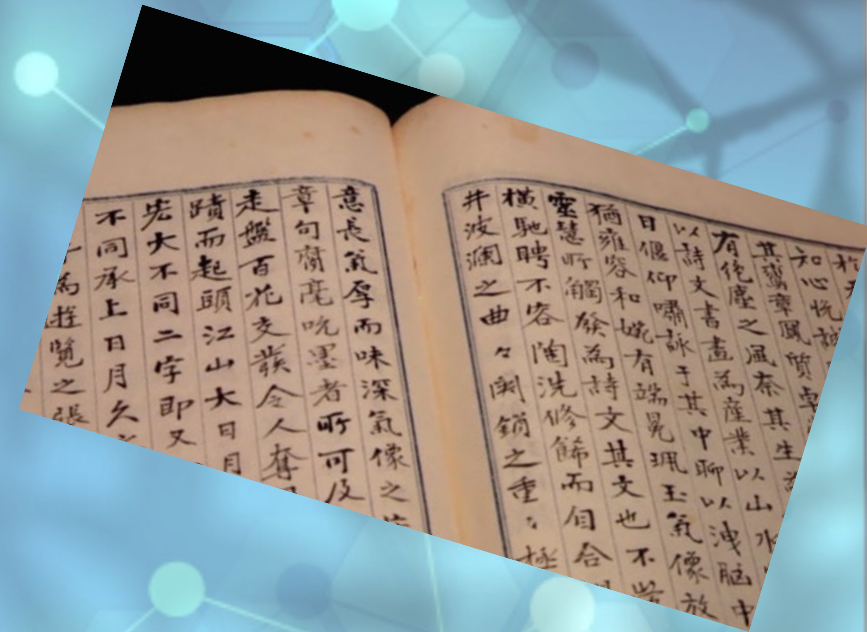 知心悦誠
其鸞章鳳質卓
有絶塵之風奈其生
以詩文書畫為産業以山水
日偃仰嘯詠于其中聊以洩腦中
猶雍容和婉有端冕珮玉氣像放
靈慧所觸發為詩文其文也不
橫馳聘不容陶洗修餙而自合
井波瀾之曲々闗鎖之重々極
意長氣厚而味深氣像之
章句腐毫吮墨者所可及
走盤百花交發令人奪
蹟而起頭江山大日月
宏大不同二字即又
不同承上日月久
為 覽之張